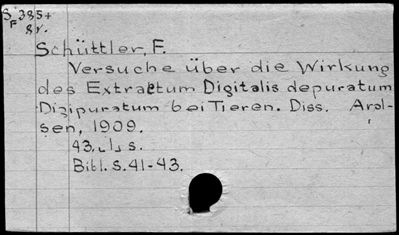 S 385+
F 8v.
Schüttler, F.
Versuche über die Wirkung
des Extractum Digitalis depuratum
Digipuratum bei Tieren. Diss. Arol-
sen, 1909.
43, S.
Bibl. S. 41-43.